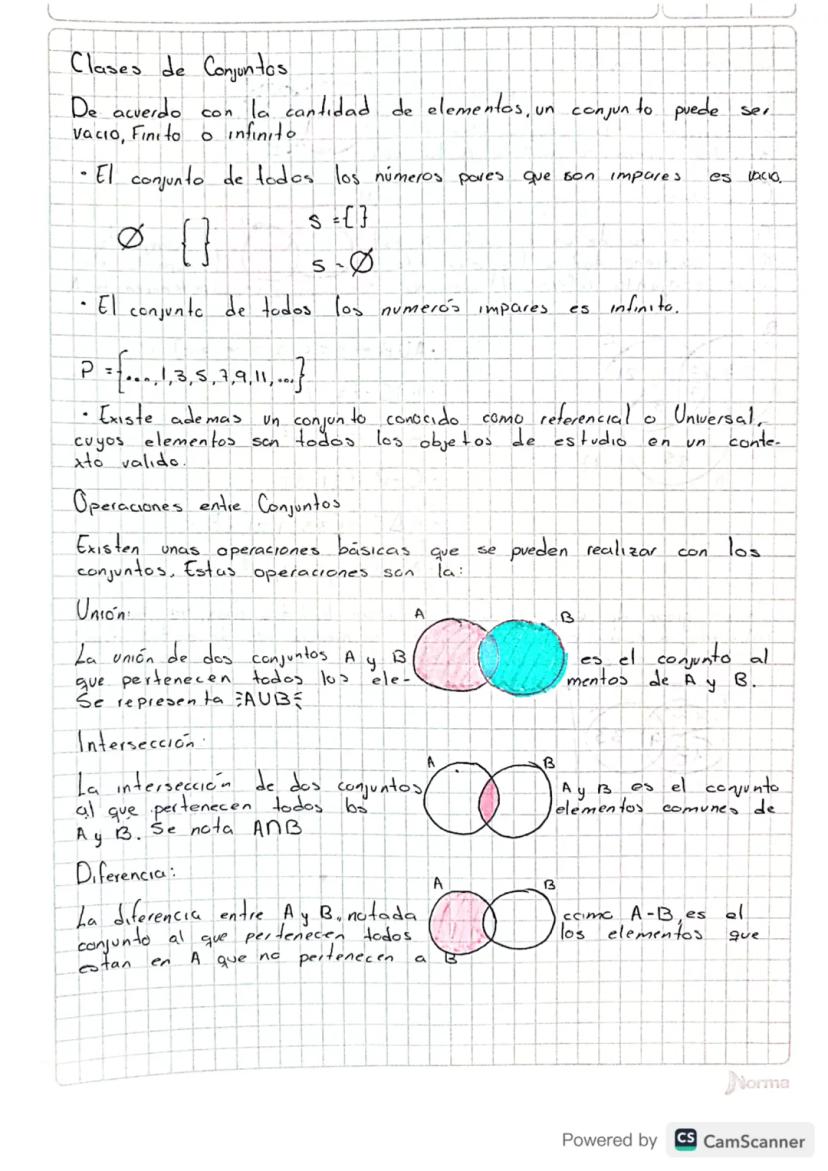 Clases de Conjuntos
De acuerdo con la cantidad de elementos, un conjunto puede ser
vacio, Finito o infinito
· El conjunto de todos los números pares que son impares es vacio.
∅ { } S = { }
S - ∅
· El conjunto de todos los numerós impares es infinito.
P = {...., 1, 3, 5, 7, 9, 11, ...}
· Existe ademas un conjunto conocido como referencial o Universal,
cuyos elementos son todos los objetos de estudio en un conte-
xto valido.
Operaciones entre Conjuntos
Existen unas operaciones básicas que se pueden realizar con los
conjuntos, Estas operaciones son la:
Unión: A B
La unión de dos conjuntos A y B es el conjunto al
que pertenecen todos los ele- mentos de A y B.
Se representa AUB
Intersección: A B
La intersección de dos conjuntos A y B es el conjunto
al que pertenecen todos los elementos comunes de
A y B. Se nota A∩B
Diferencia: A B
La diferencia entre A y B, notada como A-B, es el
conjunto al que pertenecen todos los elementos que
estan en A que no pertenecen a B
Norma
Powered by CS CamScanner